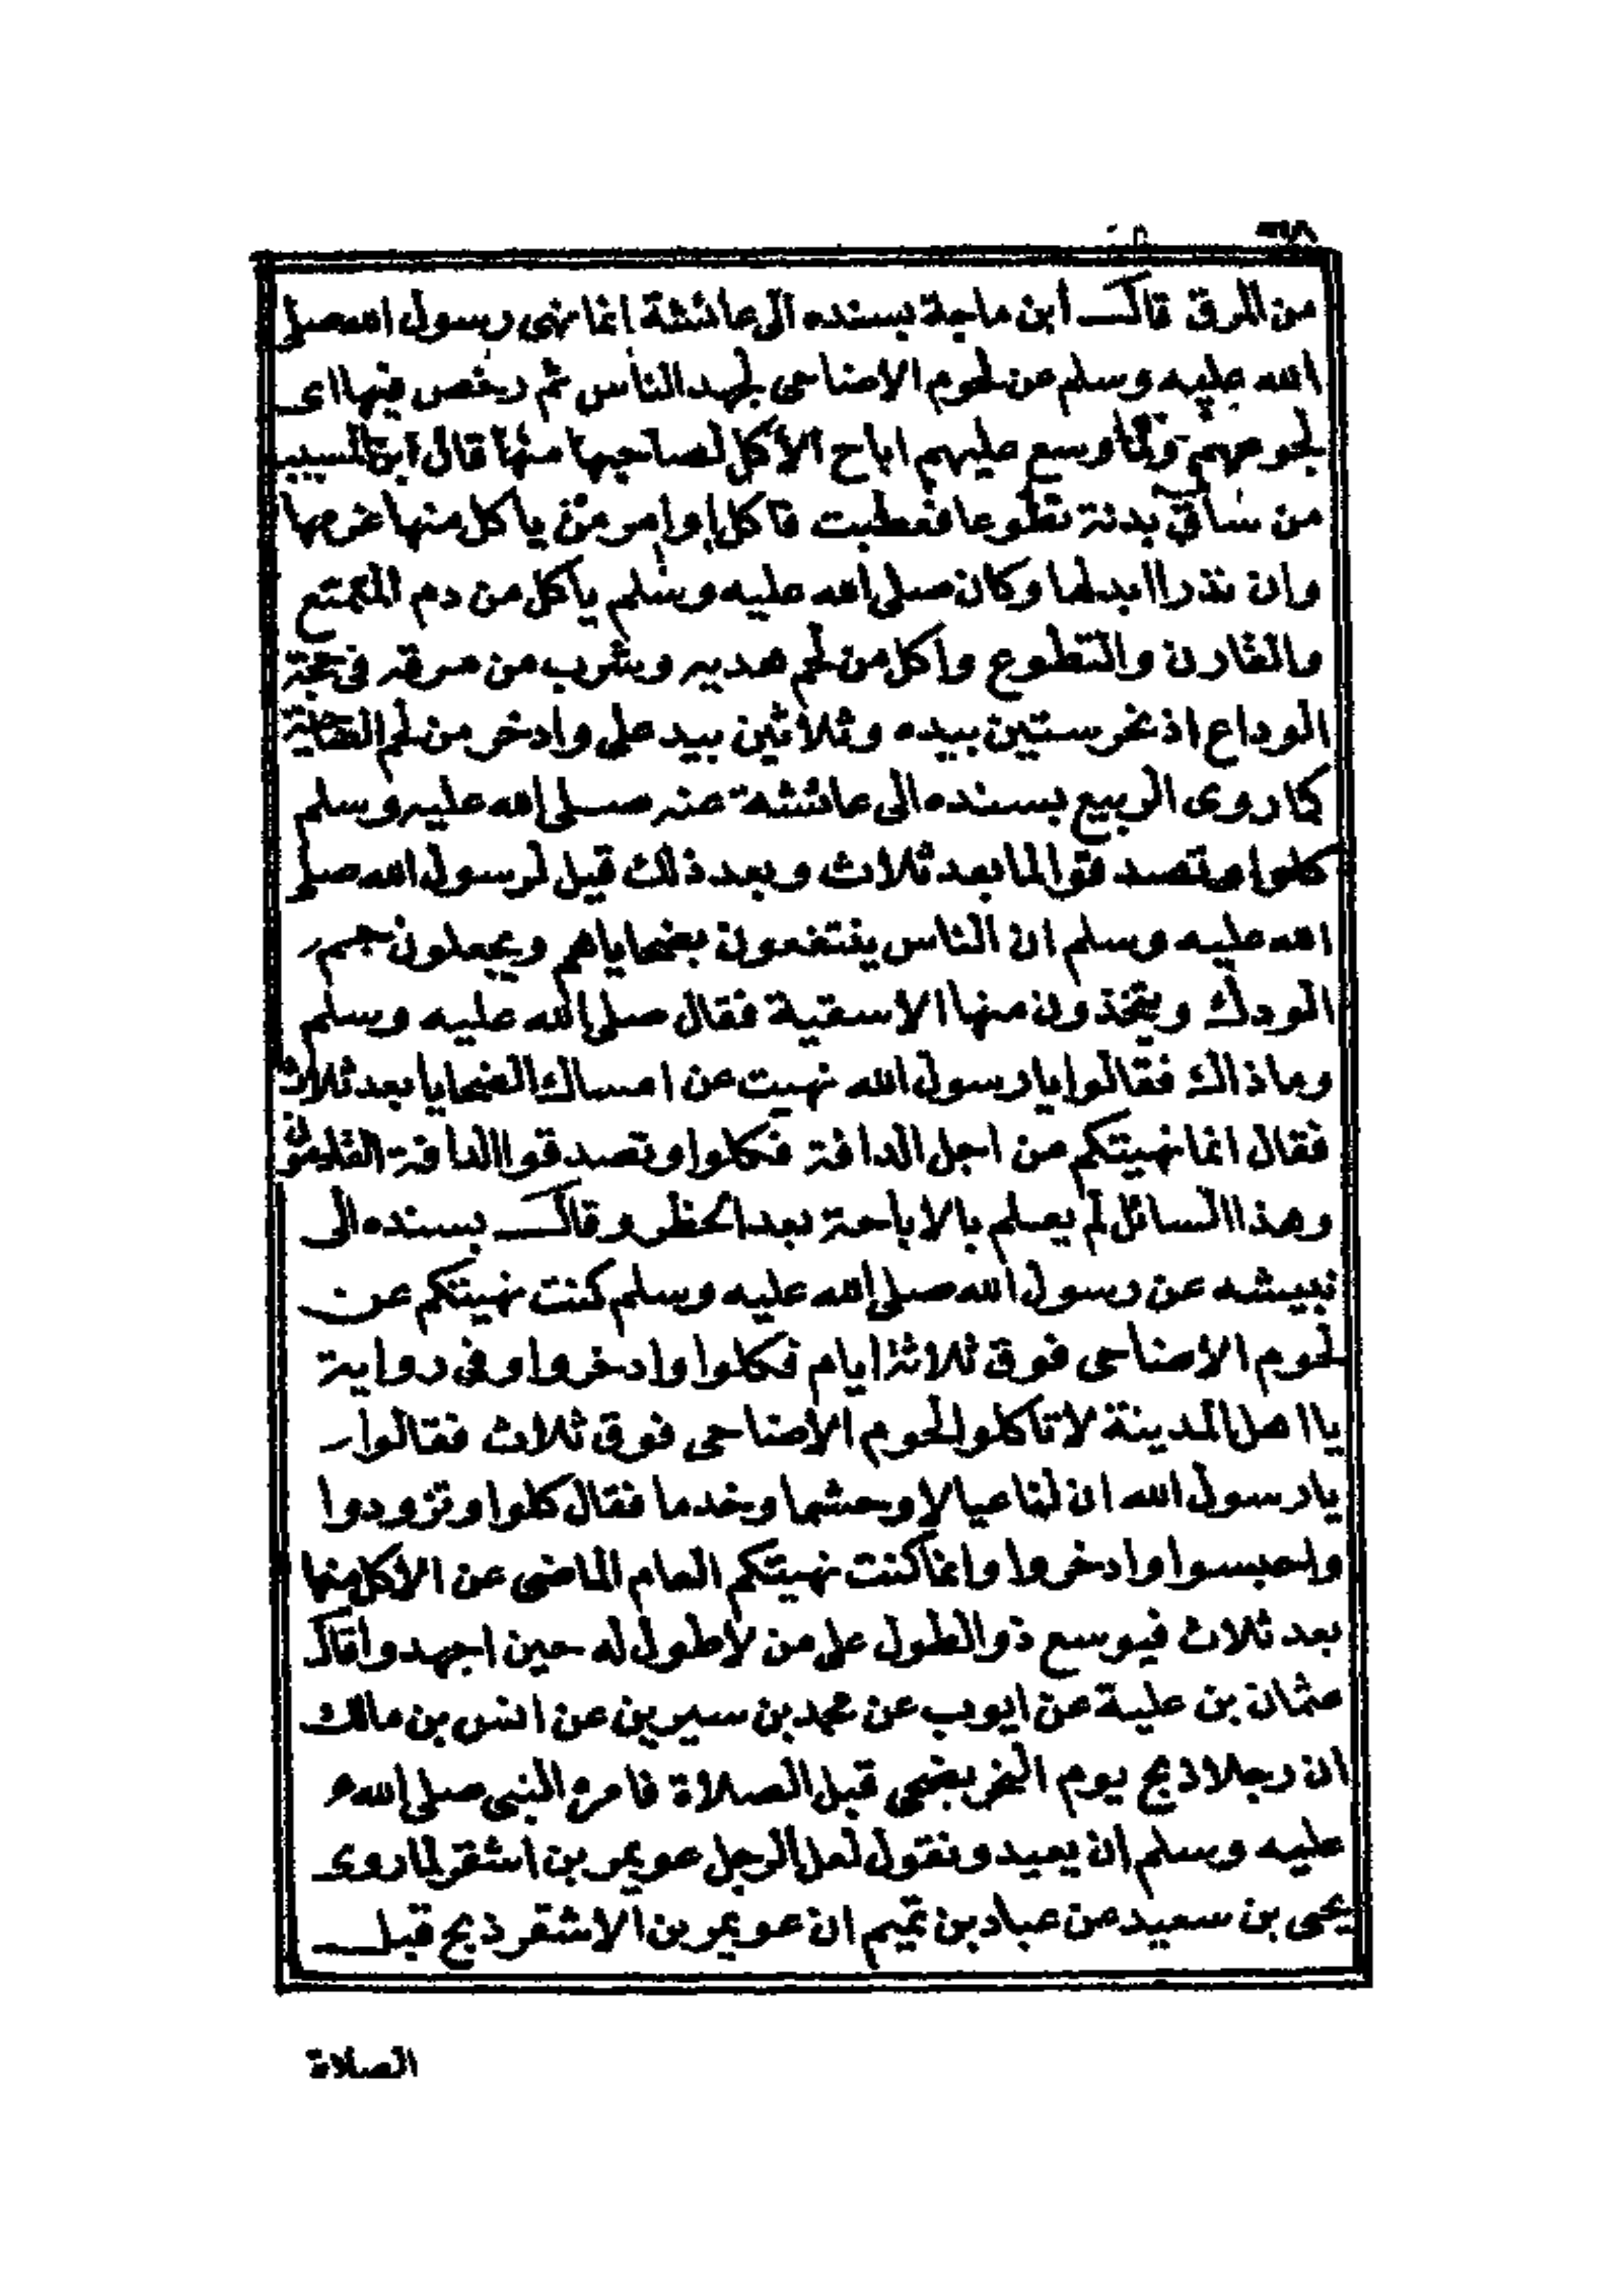 من المرق قال ابن ماجة بسنده الى عائشة انما نهى رسول الله صلى
الله عليه وسلم عن لحوم الاضاحى لجهد الناس ثم رخص فيها اى
لجوعهم ولما وسع عليهم اباح الأكل لصاحبها منها قال ابن المسيب
من ساق بدنة تطوعا فعطبت فأكل او امر من يأكل منها غرمها
وان نذرا ابدلها وكان صلى الله عليه وسلم يأكل من دم المتمتع
والقارن والتطوع وأكل من لحم هديه وشرب من مرقه فى حجة
الوداع اذ نحر ستين بيده وثلاثين بيد على وادخر من لحم
كما روى الربيع بسنده الى عائشة عنه صلى الله عليه وسلم
كلوا وتصدقوا لما بعد ثلاث وبعد ذلك قيل لرسول الله صلى
الله عليه وسلم ان الناس ينتفعون بضحاياهم ويجعلون
الودك ويتخذون منها الاسقية فقال صلى الله عليه وسلم
وما ذاك فقالوا يا رسول الله نهيت عن امساك الضحايا بعد ثلاث
فقال انما نهيتكم من اجل الدافة فكلوا وتصدقوا الدافة القادمون
وهذا السائل لم يعلم بالاباحة بعد الحظر وقال بسنده الى
نبيشه عن رسول الله صلى الله عليه وسلم كنت نهيتكم عن
لحوم الاضاحى فوق ثلاثة ايام فكلوا وادخروا وفى رواية
يا اهل المدينة لا تأكلوا لحوم الأضاحى فوق ثلاث فقالوا
يا رسول الله ان لنا عيالا وحشما وخدما فقال كلوا وتزودوا
واحبسوا وادخروا وانما كنت نهيتكم العام الماضى عن الأكل منها
بعد ثلاث فيوسع ذو الطول على من لا طول له حين اجهدوا قال
عثمان بن علية عن ايوب عن محمد بن سيرين عن انس بن مالك
ان رجلا ذبح يوم النحر بضحى قبل الصلاة فأمره النبى صلى الله
عليه وسلم ان يعيد ونقول لعل الرجل عويمر بن اشقر لما روى
يحيى بن سعيد عن عباد بن تميم ان عويمر بن الاشقر ذبح قبل
الصلاة